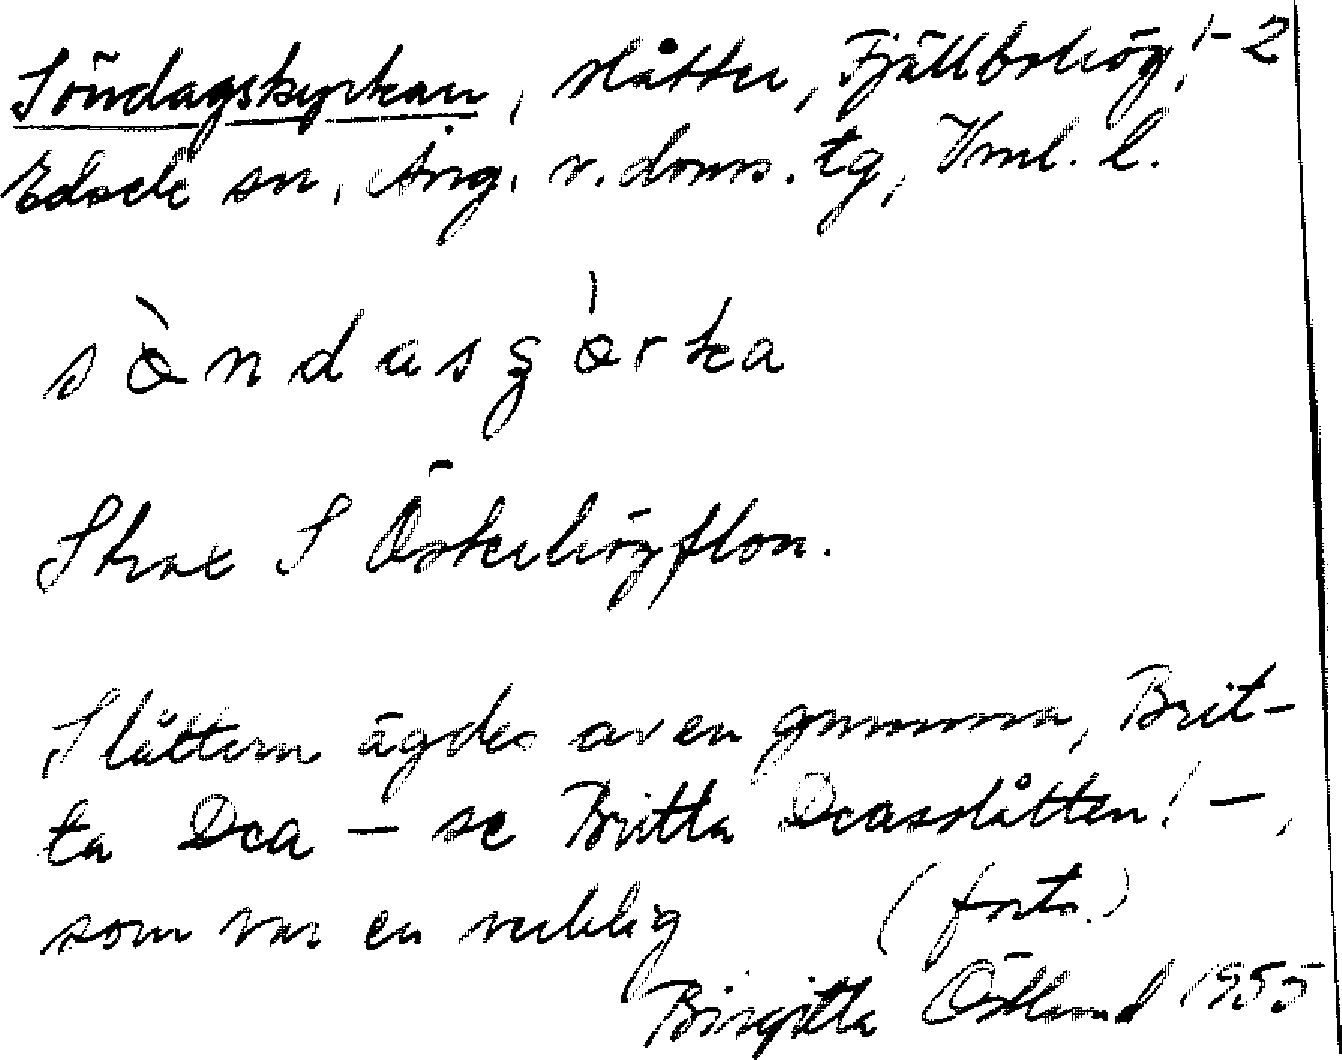 Söndagskyrkan, slåtter, Fjällbohög, 1-2
Edsele sn, Ång. v. doms. tg, Vnl. l.
söndasgörka
Strax S Österhögflon.
Slåttern ägdes av en gumma, Brit-
ta Dea – se Britta Deasslåtten! –,
som var en verklig (forts.)
Birgitta Östlund 1955